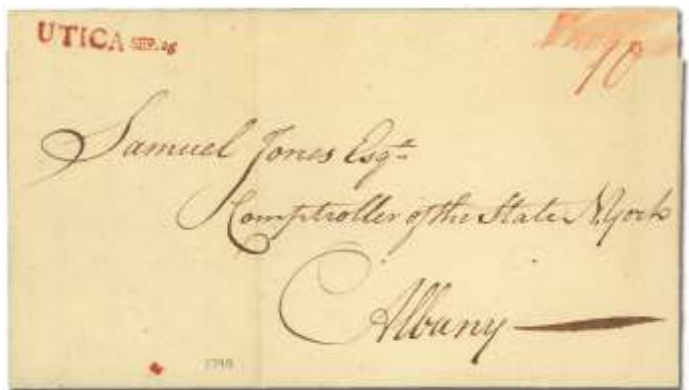 UTICA SEP. 26
10
Samuel Jones Esqr.
Comptroller of the State N. York
Albany